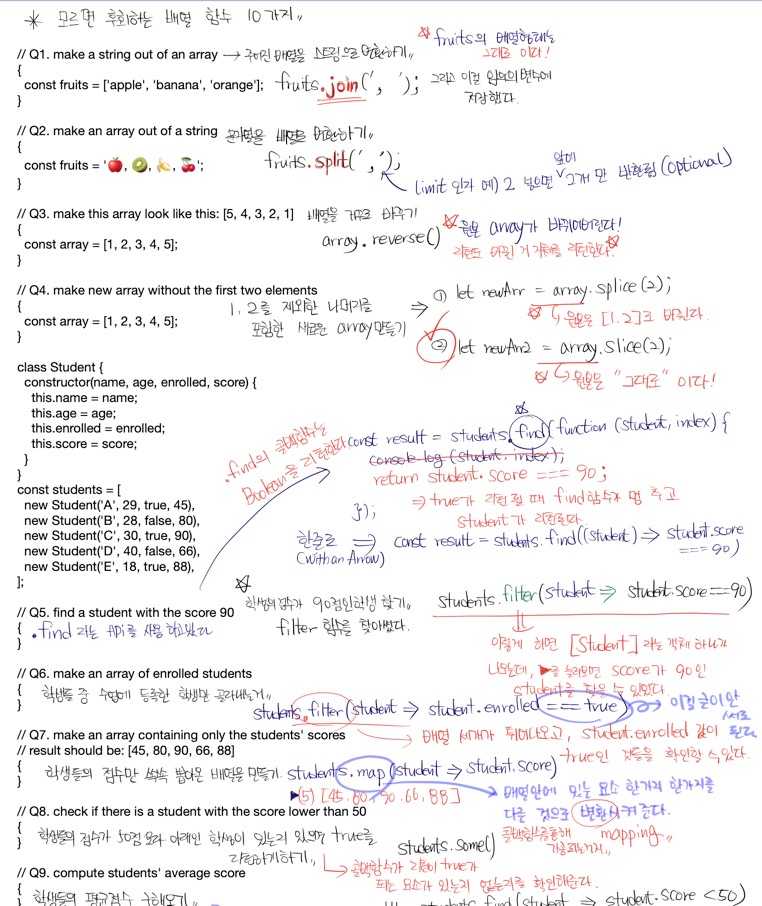 * 모르면 후회하는 배열 함수 10가지
// Q1. make a string out of an array → 주어진 배열을 스트링으로 변환하기
{
const fruits = ['apple', 'banana', 'orange'];
}
fruits.join(', ');
fruits의 배열형태는
그대로 이다!
그리고 이걸 임의의 변수에
저장했다.
// Q2. make an array out of a string 문자열을 배열로 변환하기
{
const fruits = '🍎, 🥝, 🍌, 🍒';
}
fruits.split(',');
limit 인자 예) 2 넣으면 앞에 2개만 반환됨 (optional)
// Q3. make this array look like this: [5, 4, 3, 2, 1] 배열을 거꾸로 바꾸기
{
const array = [1, 2, 3, 4, 5];
}
array.reverse()
원본 array가 바뀌어버린다!
리턴도 바뀐 거 자체를 리턴한다.
// Q4. make new array without the first two elements
{
const array = [1, 2, 3, 4, 5];
}
1, 2를 제외한 나머지를
포함한 새로운 array 만들기
⇒ ① let newArr = array.splice(2);
↳ 원본은 [1.2]로 바뀐다.
② let newArr2 = array.slice(2);
↳ 원본은 "그대로" 이다!
class Student {
constructor(name, age, enrolled, score) {
this.name = name;
this.age = age;
this.enrolled = enrolled;
this.score = score;
}
}
const students = [
new Student('A', 29, true, 45),
new Student('B', 28, false, 80),
new Student('C', 30, true, 90),
new Student('D', 40, false, 66),
new Student('E', 18, true, 88),
];
.find의 콜백함수는
Boolean을 리턴한다
const result = students.find(function (student, index) {
console.log (student, index);
return student.score === 90;
⇒ true가 리턴될 때 find함수가 멈추고
student가 리턴된다.
});
한줄로 ⇒ const result = students.find((student) ⇒ student.score
(with an Arrow) === 90)
// Q5. find a student with the score 90
{ .find 라는 API를 사용하고있다
}
학생의 점수가 90점인 학생 찾기
filter 함수를 찾아썼다.
students.filter(student ⇒ student.score==90)
이렇게 하면 [Student] 라는 객체 하나가
나오는데, ▶를 눌러보면 score가 90인
student를 찾을 수 있었다
// Q6. make an array of enrolled students
{ 학생들 중 수업에 등록한 학생만 골라내는거
}
students.filter(student ⇒ student.enrolled === true)
→ 배열 세개가 튀어나오고, student.enrolled 값이
true인 것들을 확인할 수 있다.
// Q7. make an array containing only the students' scores
// result should be: [45, 80, 90, 66, 88]
{ 학생들의 점수만 쏙쏙 뽑아온 배열을 만들기.
}
students.map(student ⇒ student.score)
▶(5) [45, 80, 90, 66, 88]
→ 배열안에 있는 요소 한가지 한가지를
다른 것으로 변화시켜준다.
mapping
// Q8. check if there is a student with the score lower than 50
{ 학생들의 점수가 50점 보다 아래인 학생이 있는지 있으면 true를
} 리턴하게하기
students.some()
↳ 콜백함수가 리턴이 true가
되는 요소가 있는지 없는지를 확인해준다.
// Q9. compute students' average score
{ 학생들의 평균점수 구하기
students.find(student ⇒ student.score <50)